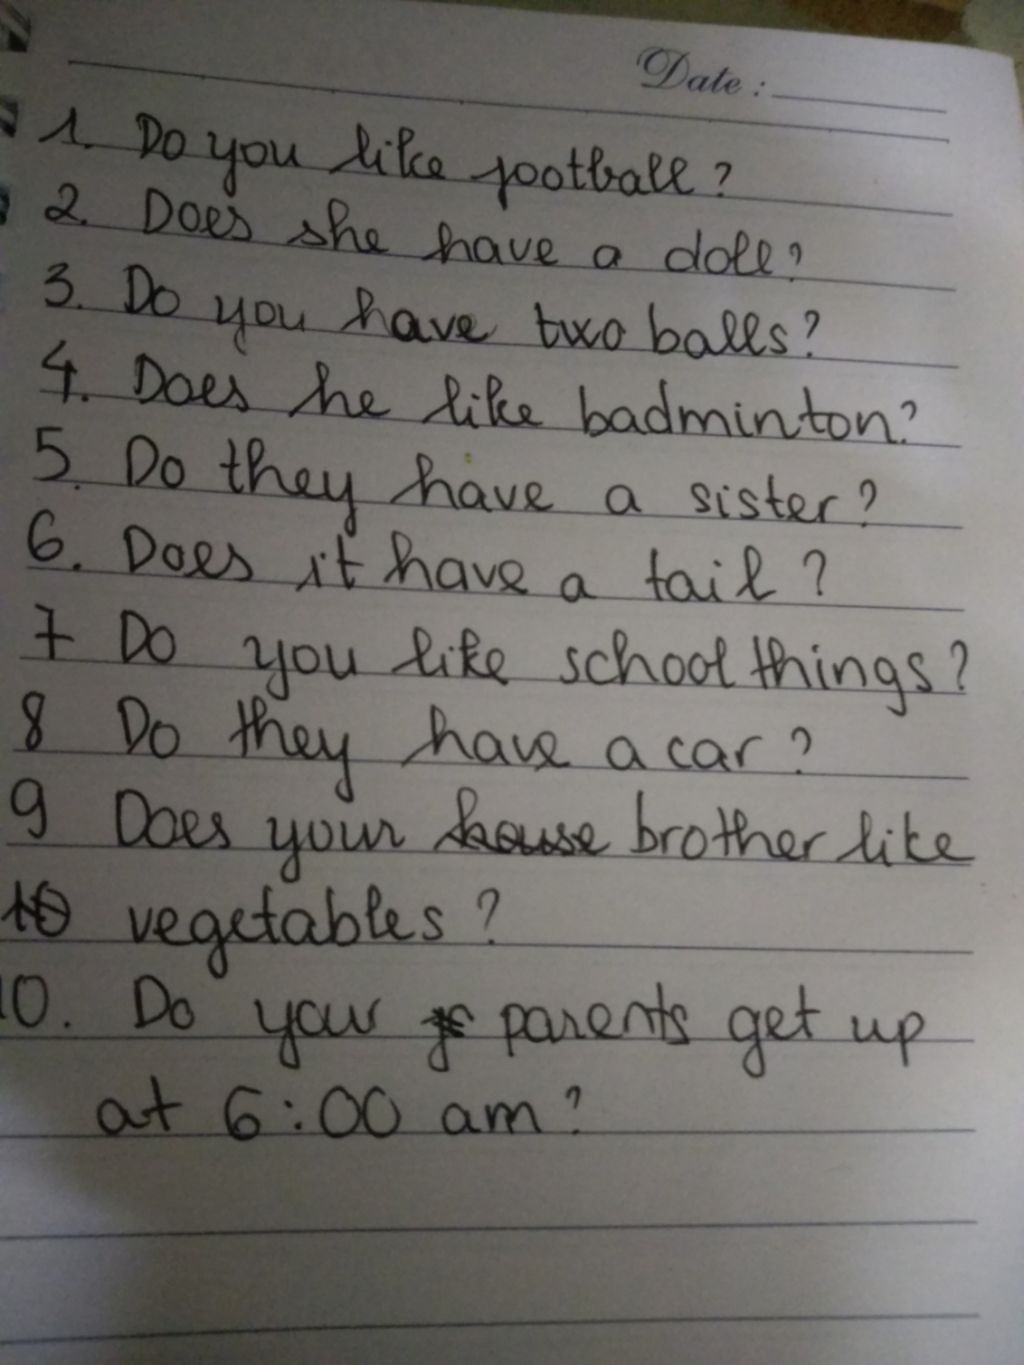 Date :
1. Do you like football ?
2. Does she have a doll?
3. Do you have two balls?
4. Does he like badminton?
5. Do they have a sister?
6. Does it have a tail ?
7 Do you like school things?
8 Do they have a car ?
9 Does your house brother like
10 vegetables ?
10. Do your parents get up
at 6:00 am?